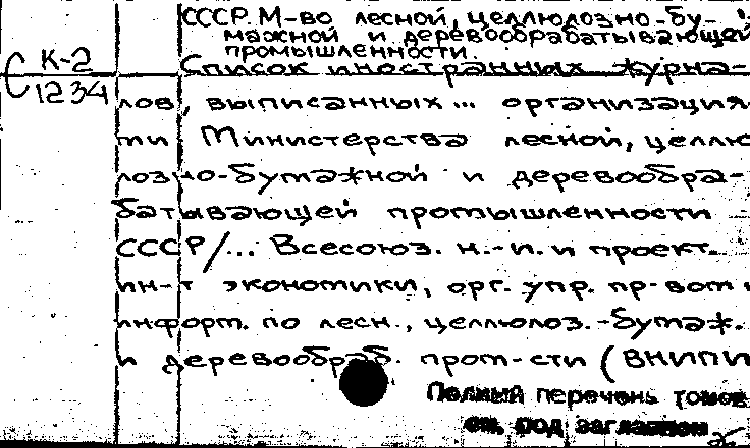 СССР. М-во лесной, целлюлозно-бу-
мажной и деревообрабатывающей
промышленности.
С К-2
1234
Список иностранных журна-
лов, выписанных... организация
ми Министерства лесной, целлю
лозно-бумажной и деревообра-
батывающей промышленности
СССР/... Всесоюз. н.-и. и проект.
ин-т экономики, орг. упр. пр-вом и
информ. по лесн., целлюлоз.-бумаж.
и деревообраб. пром-сти (ВНИПИ
Полный перечень томов
см. под заглавием